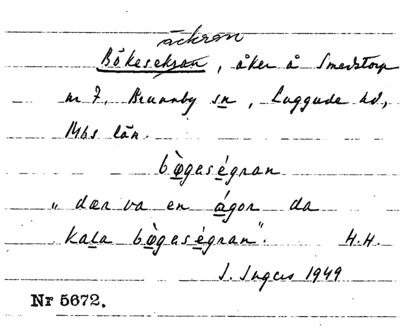 åckran
Bökesekran, åker å Smedstorp
nr 7, Brunnby sn, Luggude hd,
Mhs län.
bògaségran
"dær va en ágor da
kala bògaségran". H.H.
J. Ingers 1949
Nr 5672.